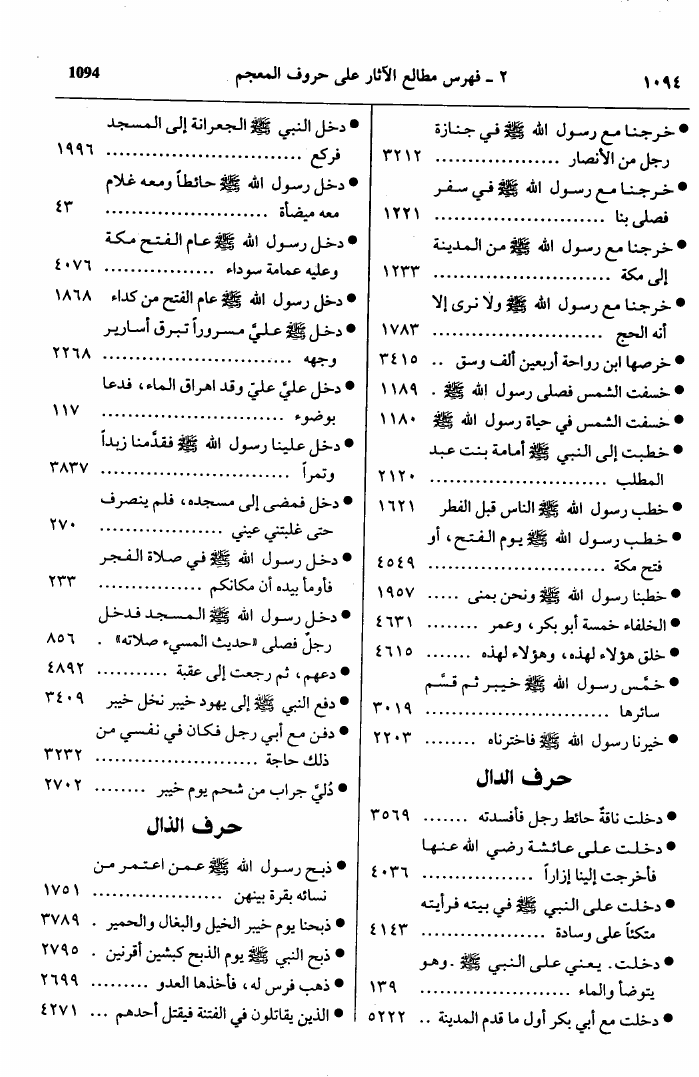 ١٠٩٤
٢ - فهرس مطالع الآثار على حروف المعجم
1094
● خرجنا مع رسول الله ﷺ في جنازة
رجل من الأنصار .................. ٣٢١٢
● خرجنا مع رسول الله ﷺ في سفر
فصلى بنا .......................... ١٢٢١
● خرجنا مع رسول الله ﷺ من المدينة
إلى مكة .......................... ١٢٣٣
● خرجنا مع رسول الله ﷺ ولا نرى إلا
أنه الحج .......................... ١٧٨٣
● خرصها ابن رواحة أربعين ألف وسق .. ٣٤١٥
● خسفت الشمس فصلى رسول الله ﷺ . ١١٨٩
● خسفت الشمس في حياة رسول الله ﷺ ١١٨٠
● خطبت إلى النبي ﷺ أمامة بنت عبد
المطلب .......................... ٢١٢٠
● خطب رسول الله ﷺ الناس قبل الفطر ١٦٢١
● خطب رسول الله ﷺ يوم الفتح، أو
فتح مكة .......................... ٤٥٤٩
● خطبنا رسول الله ﷺ ونحن بمنى ..... ١٩٥٧
● الخلفاء خمسة أبو بكر، وعمر ........ ٤٦٣١
● خلق هؤلاء لهذه، وهؤلاء لهذه ....... ٤٦١٥
● خمَّس رسول الله ﷺ خيبر ثم قسَّم
سائرها .......................... ٣٠١٩
● خيرنا رسول الله ﷺ فاخترناه ........ ٢٢٠٣
حرف الدال
● دخلت ناقةٌ حائط رجل فأفسدته ....... ٣٥٦٩
● دخلت على عائشة رضي الله عنها
فأخرجت إلينا إزاراً ................ ٤٠٣٦
● دخلت على النبي ﷺ في بيته فرأيته
متكئاً على وسادة .................. ٤١٤٣
● دخلت. يعني على النبي ﷺ. وهو
يتوضأ والماء ...................... ١٣٩
● دخلت مع أبي بكر أول ما قدم المدينة .. ٥٢٢٢
● دخل النبي ﷺ الجعرانة إلى المسجد
فركع ............................ ١٩٩٦
● دخل رسول الله ﷺ حائطاً ومعه غلام
معه ميضأة ........................ ٤٣
● دخل رسول الله ﷺ عام الفتح مكة
وعليه عمامة سوداء ................ ٤٠٧٦
● دخل رسول الله ﷺ عام الفتح من كداء ١٨٦٨
● دخل ﷺ عليَّ مسروراً تبرق أسارير
وجهه ............................ ٢٢٦٨
● دخل عليَّ عليّ وقد اهراق الماء، فدعا
بوضوء .......................... ١١٧
● دخل علينا رسول الله ﷺ فقدَّمنا زبداً
وتمراً ............................ ٣٨٣٧
● دخل فمضى إلى مسجده، فلم ينصرف
حتى غلبتني عيني .................. ٢٧٠
● دخل رسول الله ﷺ في صلاة الفجر
فأومأ بيده أن مكانكم .............. ٢٣٣
● دخل رسول الله ﷺ المسجد فدخل
رجلٌ فصلى «حديث المسيء صلاته» . ٨٥٦
● دعهم، ثم رجعت إلى عقبة .......... ٤٨٩٢
● دفع النبي ﷺ إلى يهود خيبر نخل خيبر ٣٤٠٩
● دفن مع أبي رجل فكان في نفسي من
ذلك حاجة ........................ ٣٢٣٢
● دُليَّ جراب من شحم يوم خيبر ........ ٢٧٠٢
حرف الذال
● ذبح رسول الله ﷺ عمن اعتمر من
نسائه بقرة بينهن .................. ١٧٥١
● ذبحنا يوم خيبر الخيل والبغال والحمير . ٣٧٨٩
● ذبح النبي ﷺ يوم الذبح كبشين أقرنين . ٢٧٩٥
● ذهب فرس له، فأخذها العدو ......... ٢٦٩٩
● الذين يقاتلون في الفتنة فيقتل أحدهم ... ٤٢٧١